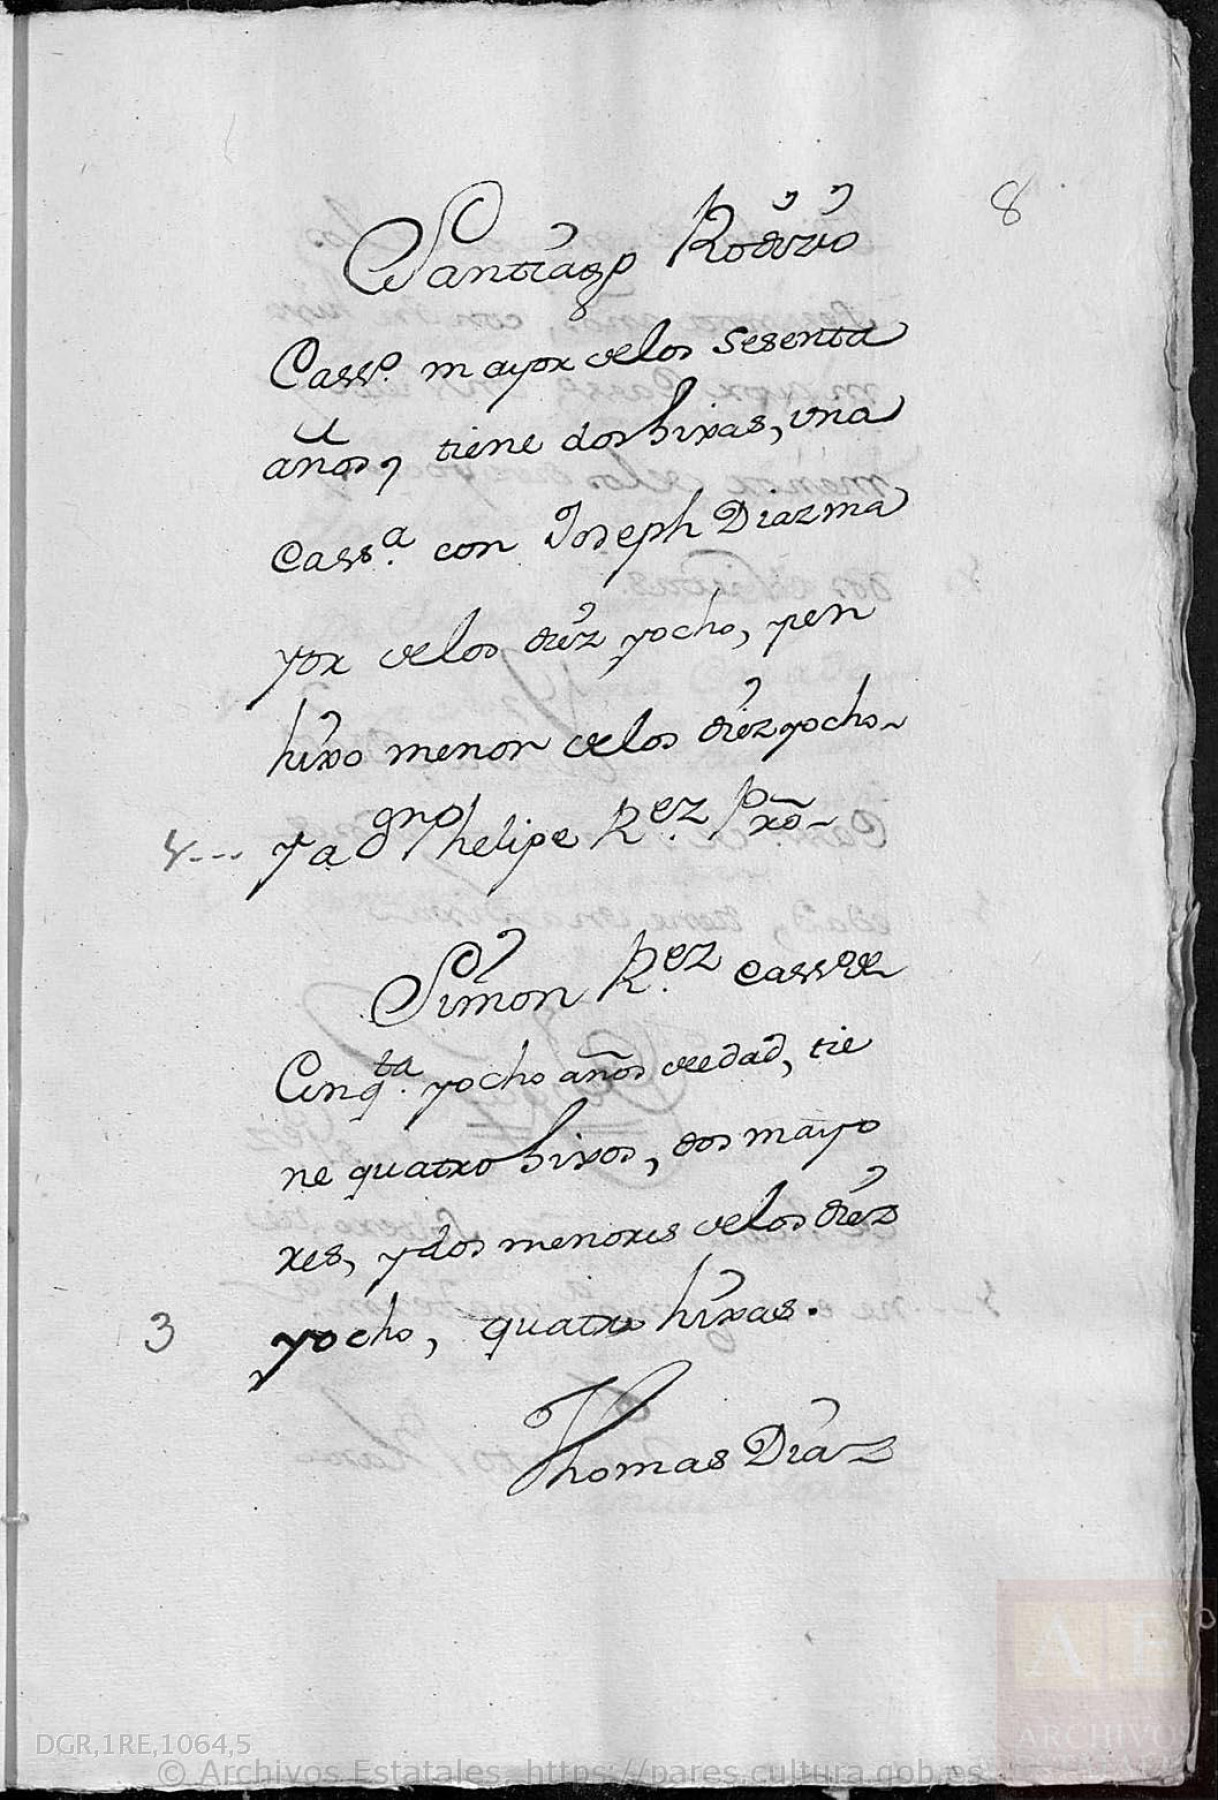 8
Santiago
Cass.º mayor de los sesenta
años, tiene dos hixas, una
Cass.ª con Joseph Diaz ma
yor de los diez y ocho, y en
hixo menor de los diez y ocho
4--- y a Phelipe R.ez
Simon R.ez cass.º de
Cinq.ta y ocho años de edad, tie
ne quatro hixos, dos mayo
res, y dos menores de los diez
3 y ocho, quatro hixas.
Thomas Diaz
DGR,1RE,1064,5
© Archivos Estatales, https://pares.cultura.gob.es
AE
ARCHIVOS